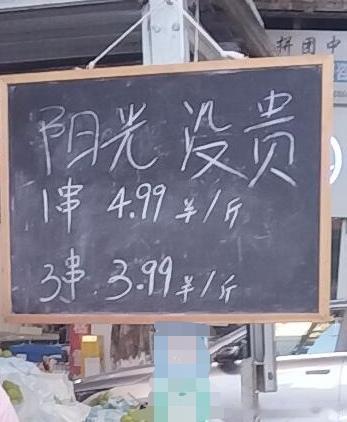 拼团中
阳光 没贵
1串 4.99 ¥/斤
3串 3.99 ¥/斤